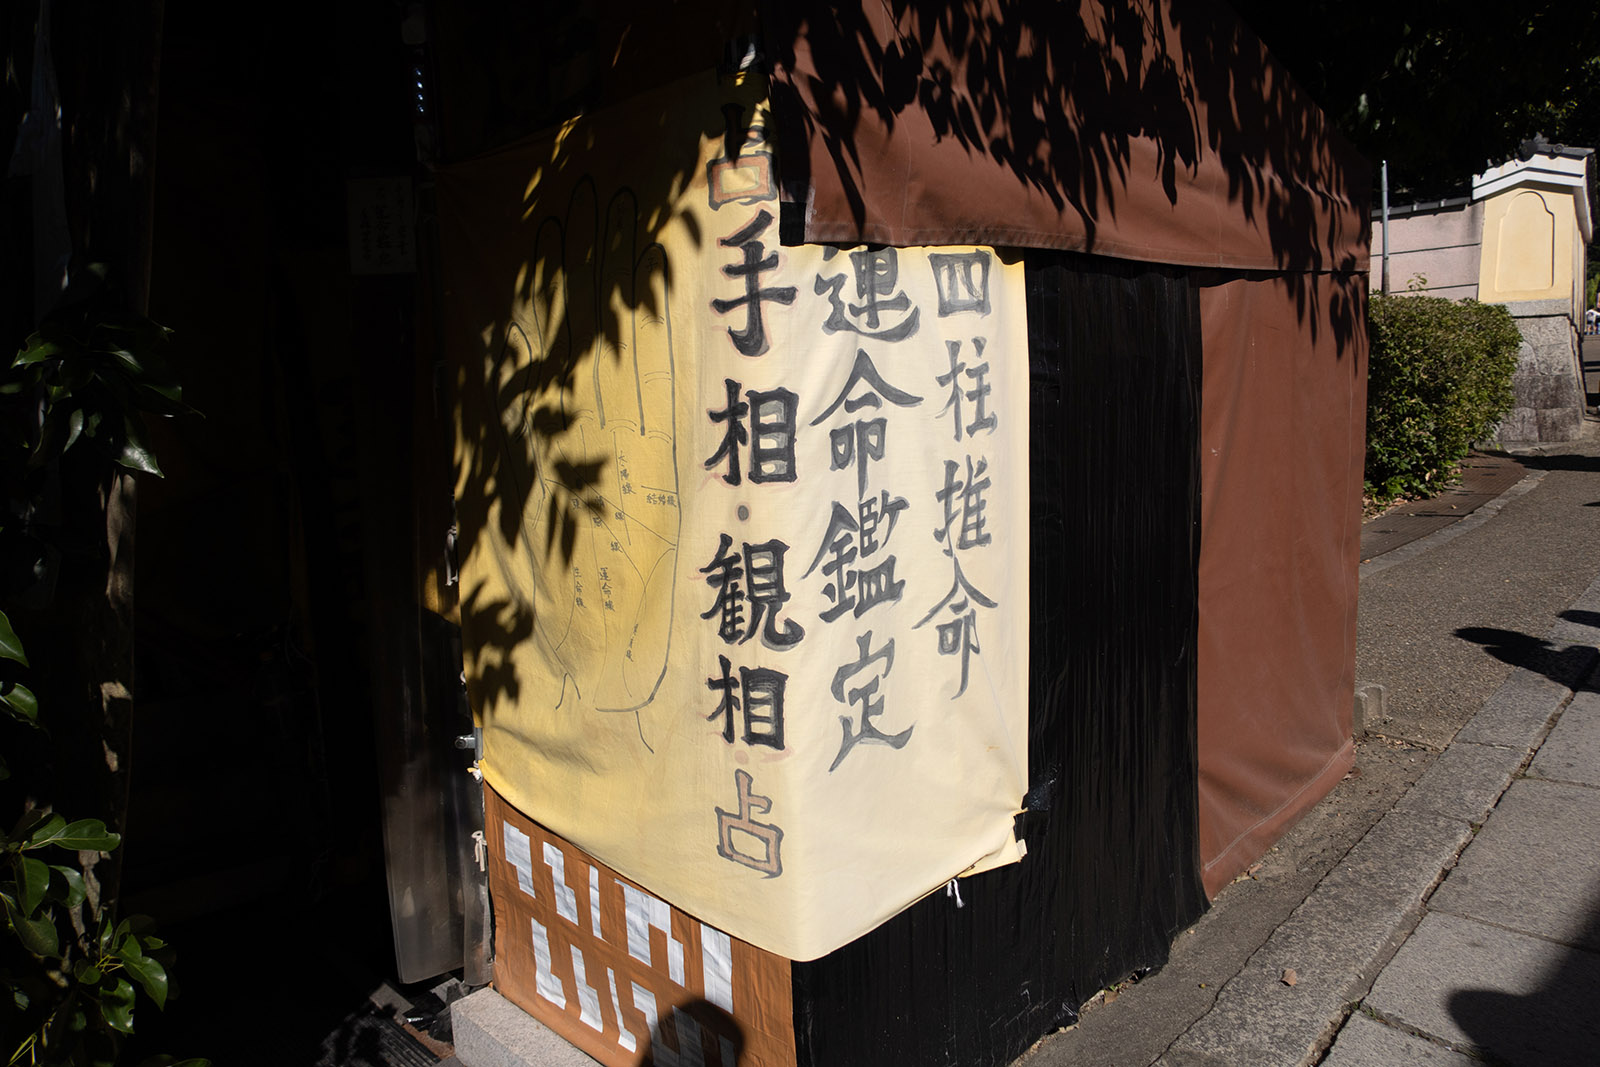 四柱推命
運命鑑定
占手相・観相・占
太陽線
結婚線
運命線
生命線